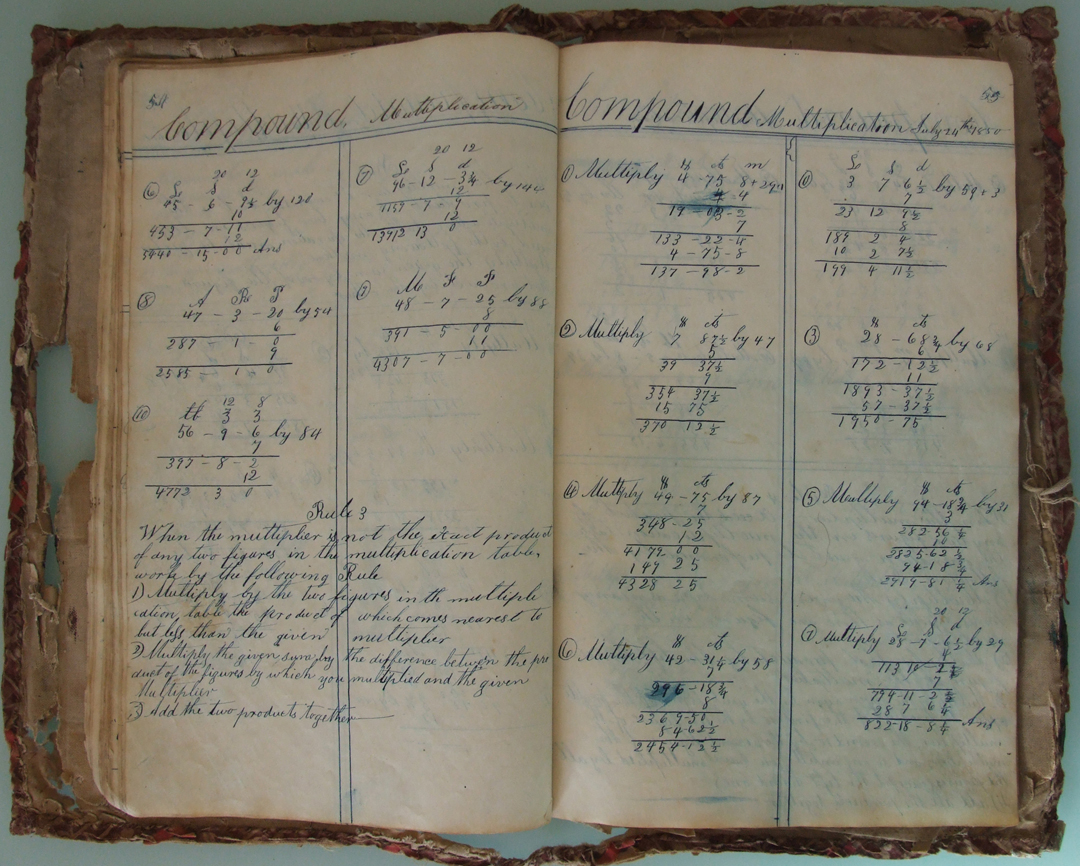 54
Compound Multiplication
20 12
£ S d
45 - 6 - 9½ by 120
10
453 - 7 - 11
12
5440 - 15 - 00 Ans
⑦
20 12
£ S d
96 - 12 - 3¾ by 144
12
1159 - 7 - 9
12
13912 13 0
⑧
A R P
47 - 3 - 20 by 54
6
287 - 1 - 0
9
2585 - 1 0
⑨
M F P
48 - 7 - 25 by 88
8
391 - 5 - 00
11
4307 - 7 - 00
⑩
12 8
℔ 3 3
56 - 9 - 6 by 84
7
397 - 8 - 2
12
4772 3 0
Rule 3
When the multiplier is not the exact product
of any two figures in the multiplication table,
work by the following Rule
1) Multiply by the two figures in the multipli
cation, table the product of which comes nearest to
but less than the given multiplier
2) Multiply the given sum by the difference between the pro
duct of the figures by which you multiplied and the given
Multiplier
3) Add the two products together
Compound Multiplication July 24th 1850
① Multiply
$ cts m
4 - 75 8 + 29
4
19 - 03 - 2
7
133 - 22 - 4
4 - 75 - 8
137 - 98 - 2
£ S d
3 7 6½ by 59 + 3
7
23 12 9½
8
189 2 4
10 2 7½
199 4 11½
② Multiply
$ cts
7 87½ by 47
5
39 37½
9
354 37½
15 75
370 12½
③
$ cts
28 - 68¾ by 68
6
172 - 12½
11
1893 - 37½
57 - 37½
1950 - 75
④ Multiply
$ cts
49 - 75 by 87
7
348 - 25
12
4179 00
149 25
4328 25
⑤ Multiply
$ cts
94 - 18¾ by 31
3
282 56¼
10
2825 - 62½
94 - 18¾
2919 - 81¼ Ans
⑥ Multiply
$ cts
42 - 31¼ by 58
7
296 - 18¾
8
2369 - 50
84 62½
2454 - 12½
⑦ Multiply
20 12
£ S d
28 - 7 - 6½ by 29
4
7
794 - 11 - 2
28 7 6½
822 - 18 - 8½ Ans